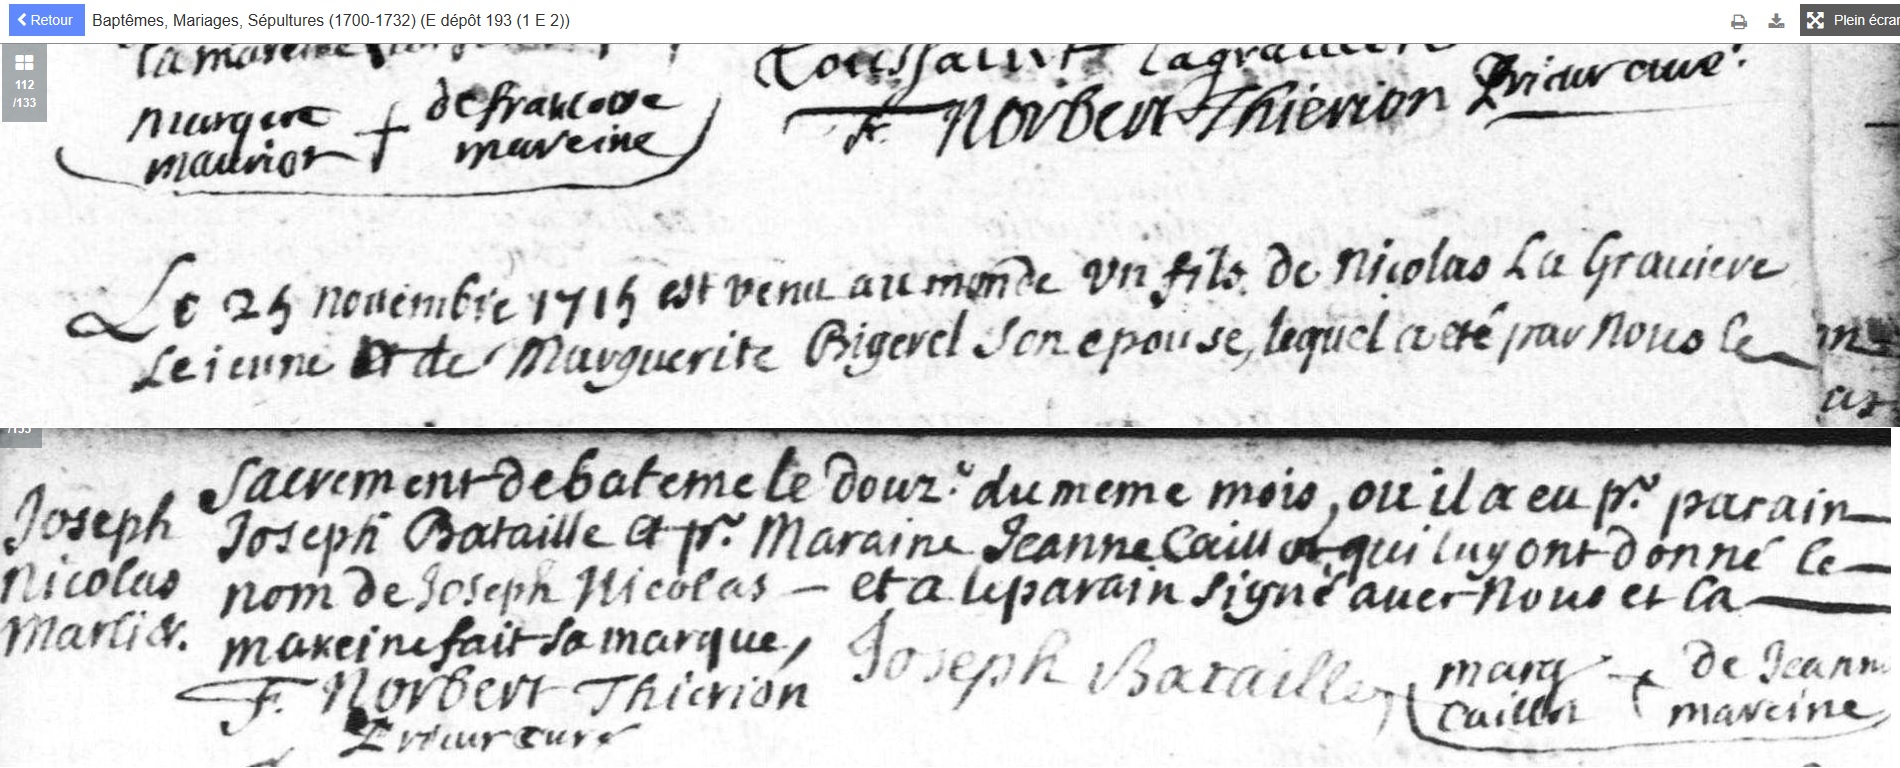 Retour Baptêmes, Mariages, Sépultures (1700-1732) (E dépôt 193 (1 E 2)) Plein écran
112
/133
la mareine
Toussaint Lagraviere
marque + de francoise
maurior mareine
f. Norbert Thierion Prieur curé.
Le 25 novembre 1715 est venu au monde un fils de Nicolas La Graviere
Le ieune et de Marguerite Bigerel son epouse, lequel a eté par Nous le
/133
Joseph
Nicolas
Marlier.
sacrement de bateme le douz.e du meme mois, ou il a eu pr. parain
Joseph Bataille et pr. Maraine Jeanne Caillot qui luy ont donné le
nom de Joseph Nicolas - et a le parain signé avec Nous et la
mareine fait sa marque,
Joseph Bataille
marq + de Jeann
Caillot mareine
F. Norbert Thierion
Prieur curé